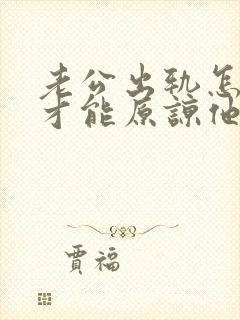 老公出轨怎
才能原谅他
贾福